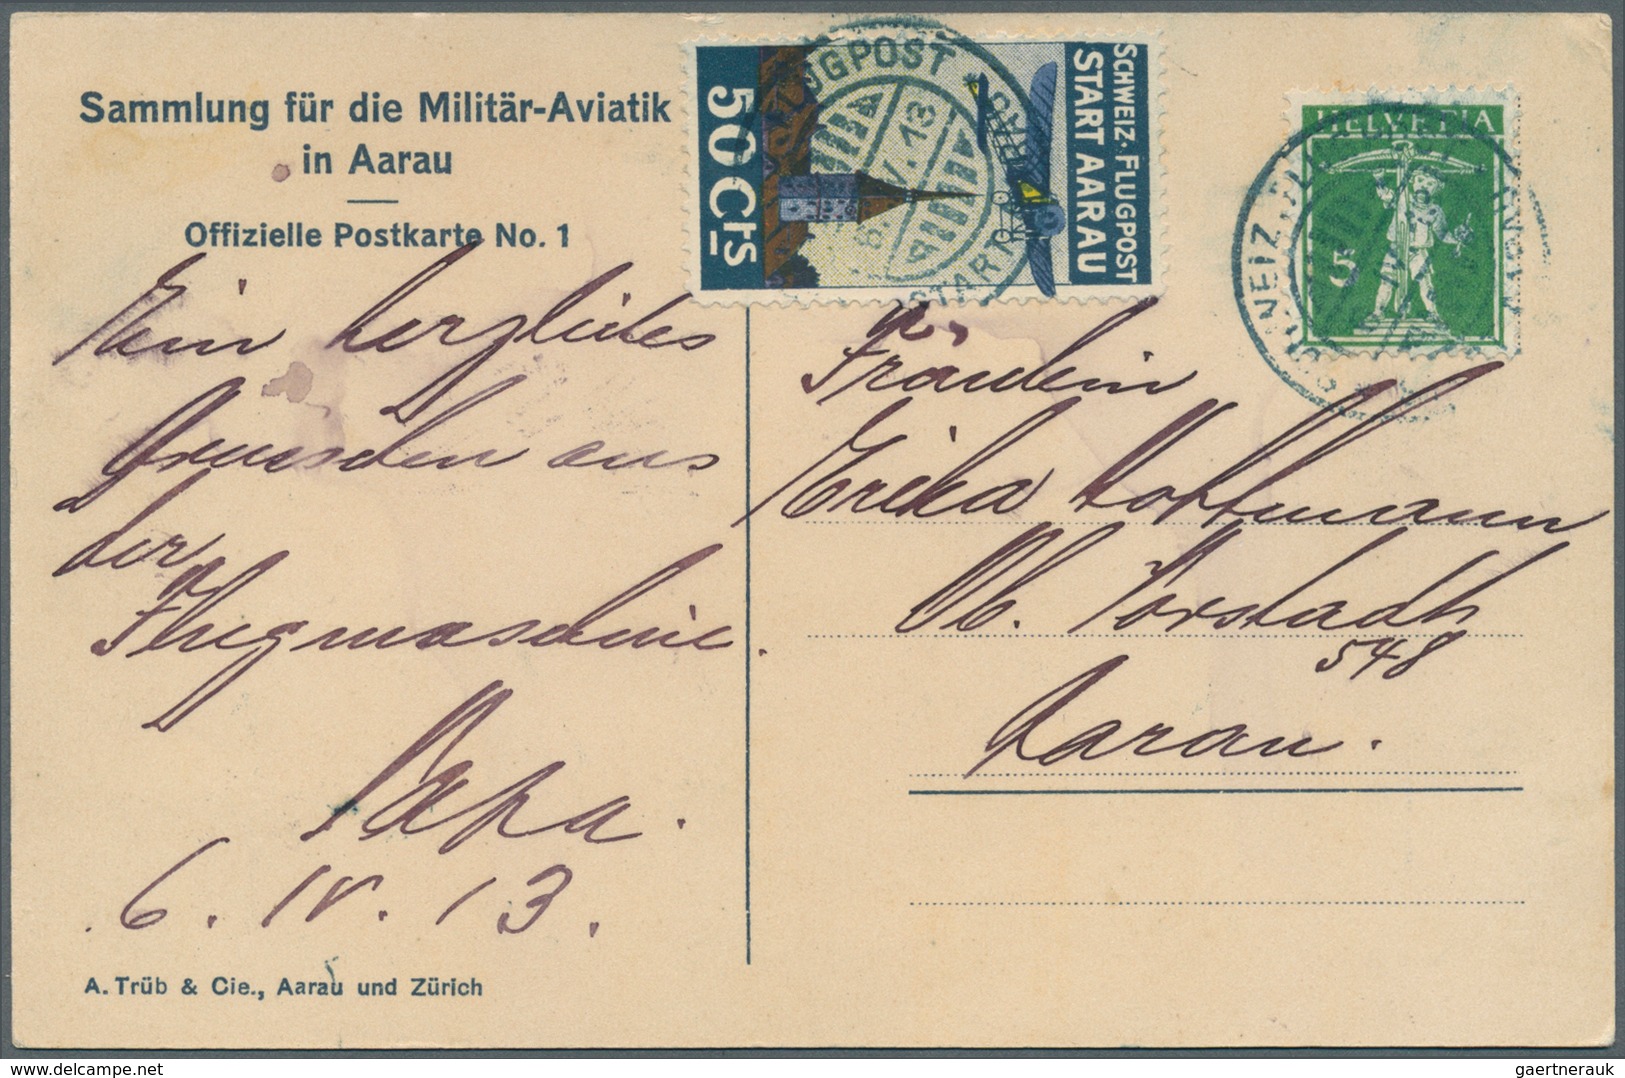 Sammlung für die Militär-Aviatik
in Aarau
Offizielle Postkarte No. 1
SCHWEIZ. FLUGPOST
START AARAU
50 Cts
FLUGPOST
V. 13
START
HELVETIA
5
Ein herzliches
Gruesschen aus
der
Flugmaschine.
Papa.
6. IV. 13.
Fräulein
Erika Hoffmann
Ob. Vorstadt
548
Aarau.
A. Trüb & Cie., Aarau und Zürich
gaertnerauk
delcampe.net